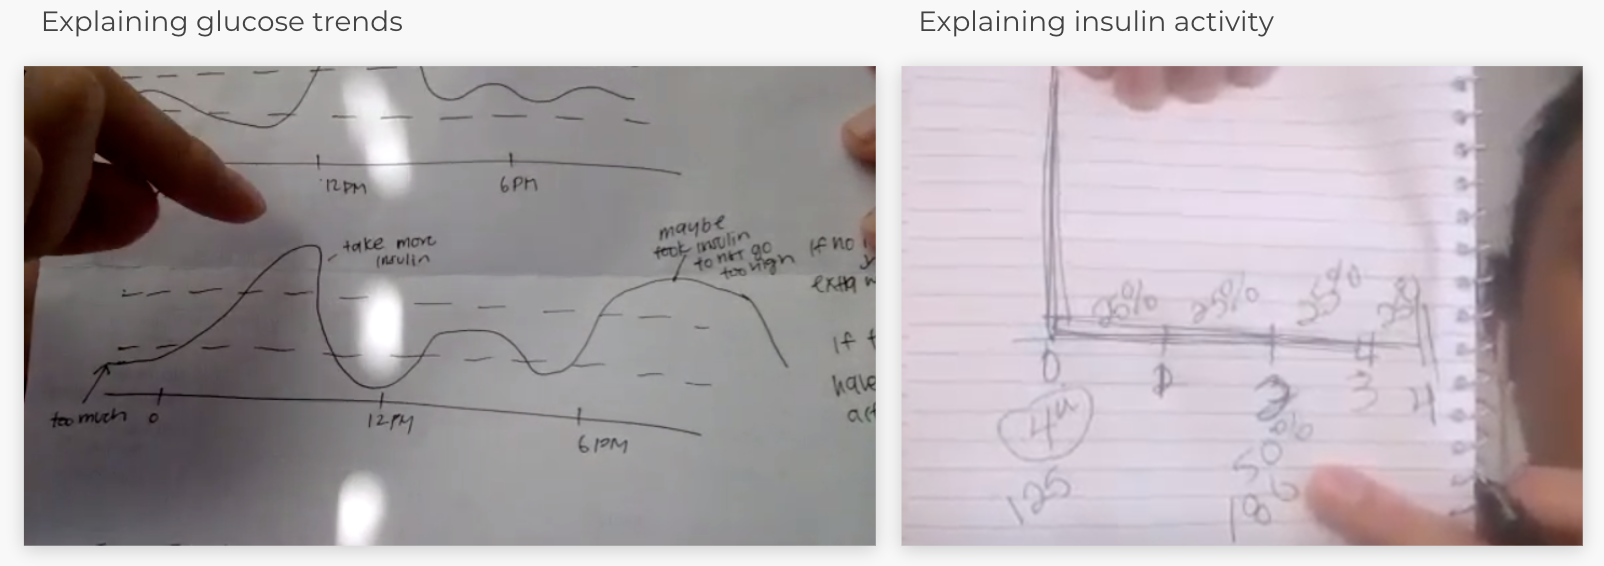 Explaining glucose trends
12PM
6PM
take more
insulin
maybe
took insulin
to not go
too high
If no
extra
too much
0
12PM
6PM
If
have
Explaining insulin activity
25% 25% 25% 25
0 1 3 4
4u
%
50
125
186